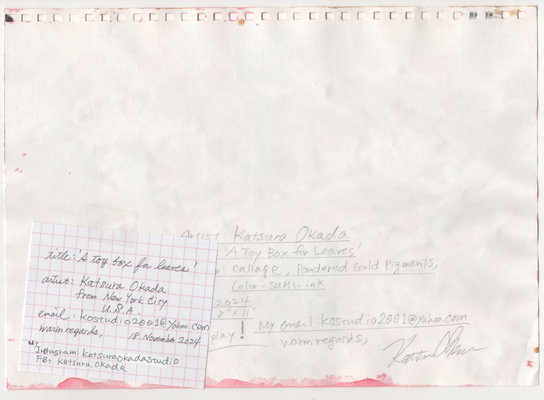 Artist: Katsura Okada
'A Toy Box for Leaves'
: Callage, Powdered Gold Pigments,
Color-SUMI-ink
2024
8"x11"
play! My email: kostudio2001@Yahoo.com
warm regards,
title: 'A toy box for leaves'
Katsura Okada
from New York City
U.S.A.
email: kostudio2001@Yahoo.com
warm regards, 18 November 2024
My Instagram: Katsuraokadastudio
FB: Katsura.Okada